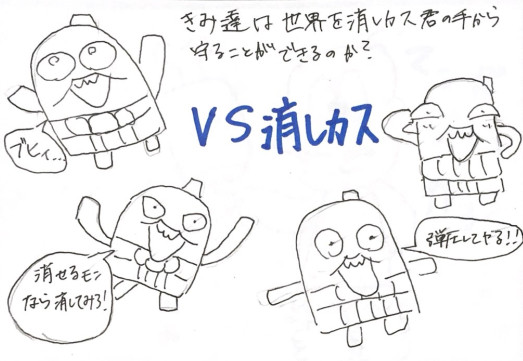 きみ達は世界を消しカス君の手から
守ることができるのか?
VS消しカス
ブヒィ…
消せるモン
なら消してみろ!
弾圧してやる!!